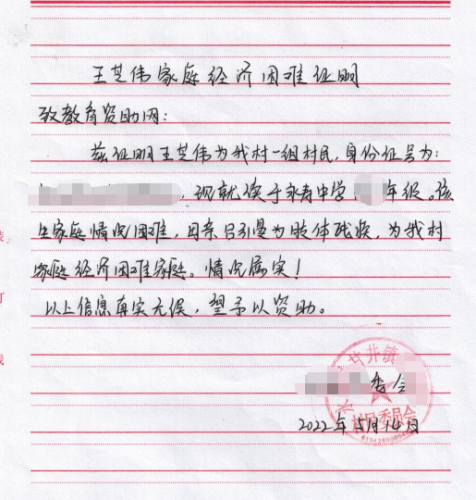 王芝伟家庭经济困难证明
致教育资助网:
兹证明王芝伟为我村一组村民,身份证号为:
,现就读于永寿中学 年级。该
生家庭情况困难,母亲吕引曼为肢体残疾,为我村
家庭经济困难家庭。情况属实!
以上信息真实无误,望予以资助。
井镇
委会
村民委员会
2022年5月14日